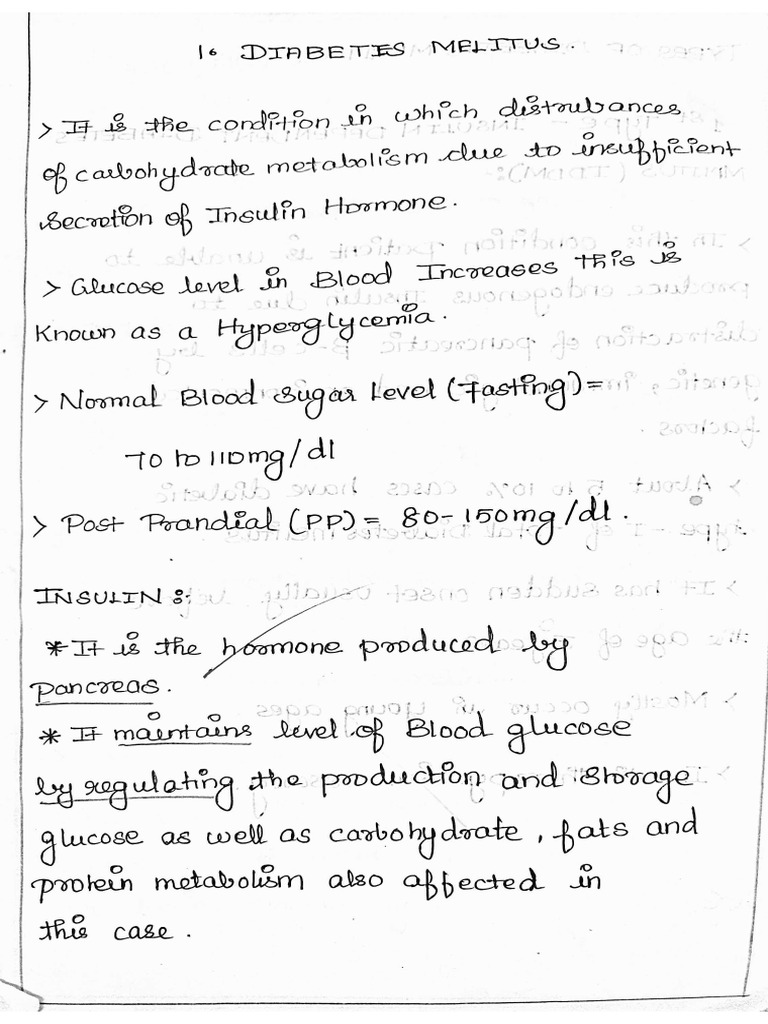 1. DIABETIES MELITUS.
> It is the condition in which distrubances
of carbohydrate metabolism due to insufficient
secretion of Insulin Hormone.
> Glucase level in Blood Increases this is
Known as a Hyperglycemia.
> Normal Blood Sugar Level (Fasting) =
70 to 110mg/dl
> Post Prandial (PP) = 80-150mg/dl.
INSULIN :-
* It is the hormone produced by
pancreas.
* It maintains level of Blood glucose
by regulating the production and storage
glucose as well as carbohydrate, fats and
protein metabolism also affected in
this case.